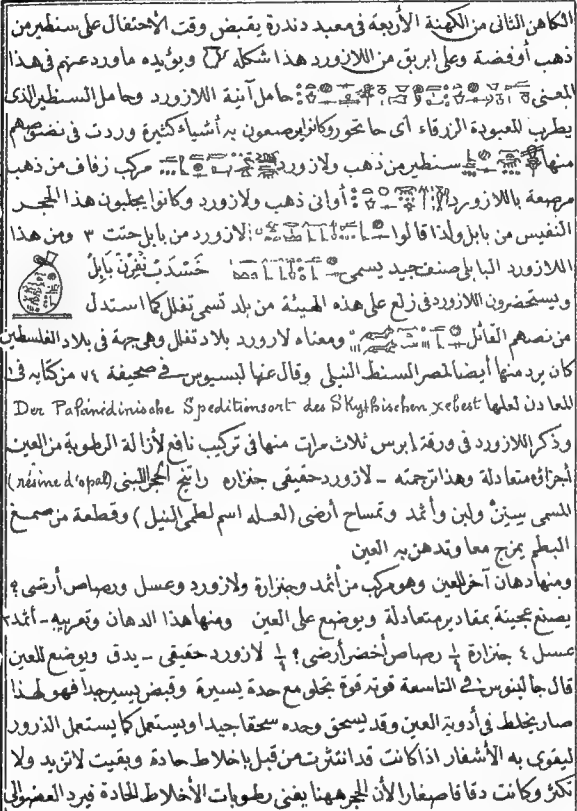 الكاهن الثانى من الكهنة الأربعة فى معبد دندرة يقبض وقت الاحتفال على سنطير من
ذهب أو فضة وعلى ابريق من اللازورد هذا شكله ويؤيده ما ورد عنهم فى هذا
المعنى حامل آنية اللازورد وحامل السنطير الذى
يطرب للمعبودة الزرقاء أى حاتحور وكانوا يرصعون به أشياء كثيرة وردت فى نصوصهم
منها سنطير من ذهب ولازورد مركب زفاف من ذهب
مرصعة باللازورد أوانى ذهب ولازورد وكانوا يجلبون هذا الحجر
النفيس من بابل ولذا قالوا لازورد من بابل حتت ٣ ومن هذا
اللازورد البابلى صنف جيد يسمى خَسْدَبْ نُفْرْنْ بَابِلُ
ويستحضرون اللازورد فى زلع على هذه الهيئة من بلد تسمى تفلل كما استدل
من نصهم القائل ومعناه لازورد بلاد تفلل وهى جهة فى بلاد الفلسطين
كان يرد منها أيضا لمصر السنط النيلى وقال عنها لبسيوس فى صحيفة ٧٤ من كتابه فى
المعادن لعلها Der Palänedinische Speditionsort des Skythischen xebest
وذكر اللازورد فى ورقة ابرس ثلاث مرات منها فى تركيب نافع لأزالة الرطوبة من العين
أجزاؤه متعادلة وهذا ترجمته - لازورد حقيقى جنزاره راتنج الحجر اللبنى (résine d'opal)
المسمى سيتن ولبن وأثمد وتمساح أرضى (لعله اسم لطمى النيل) وقطعة من صمغ
البطم يمزج معا وتدهن به العين
ومنها دهان آخر للعين وهو مركب من أثمد وجنزارة ولازورد وعسل ورصاص أرضى؟
يصنع عجينة بمقادير متعادلة ويوضع على العين ومنها هذا الدهان وتعريبه - أثمد ٢
عسل ٤ جنزارة ¼ رصاص أخضر أرضى؟ ¼ لازورد حقيقى - يدق ويوضع للعين
قال جالينوس فى التاسعة قوته قوة تجلى مع حدة يسيرة وقبض يسير جدا فهو لهذا
صار يخلط فى أدوية العين وقد يسحق وحده سحقا جيدا ويستعمل كما يستعمل الذرور
ليقوى به الأشفار اذا كانت قد انتثرت من قبل باخلاط حادة وبقيت لا تزيد ولا
تكثر وكانت دقاقا صغارا لأن الحجر ههنا يفنى رطوبات الأخلاط الحادة فيرد العضو الى